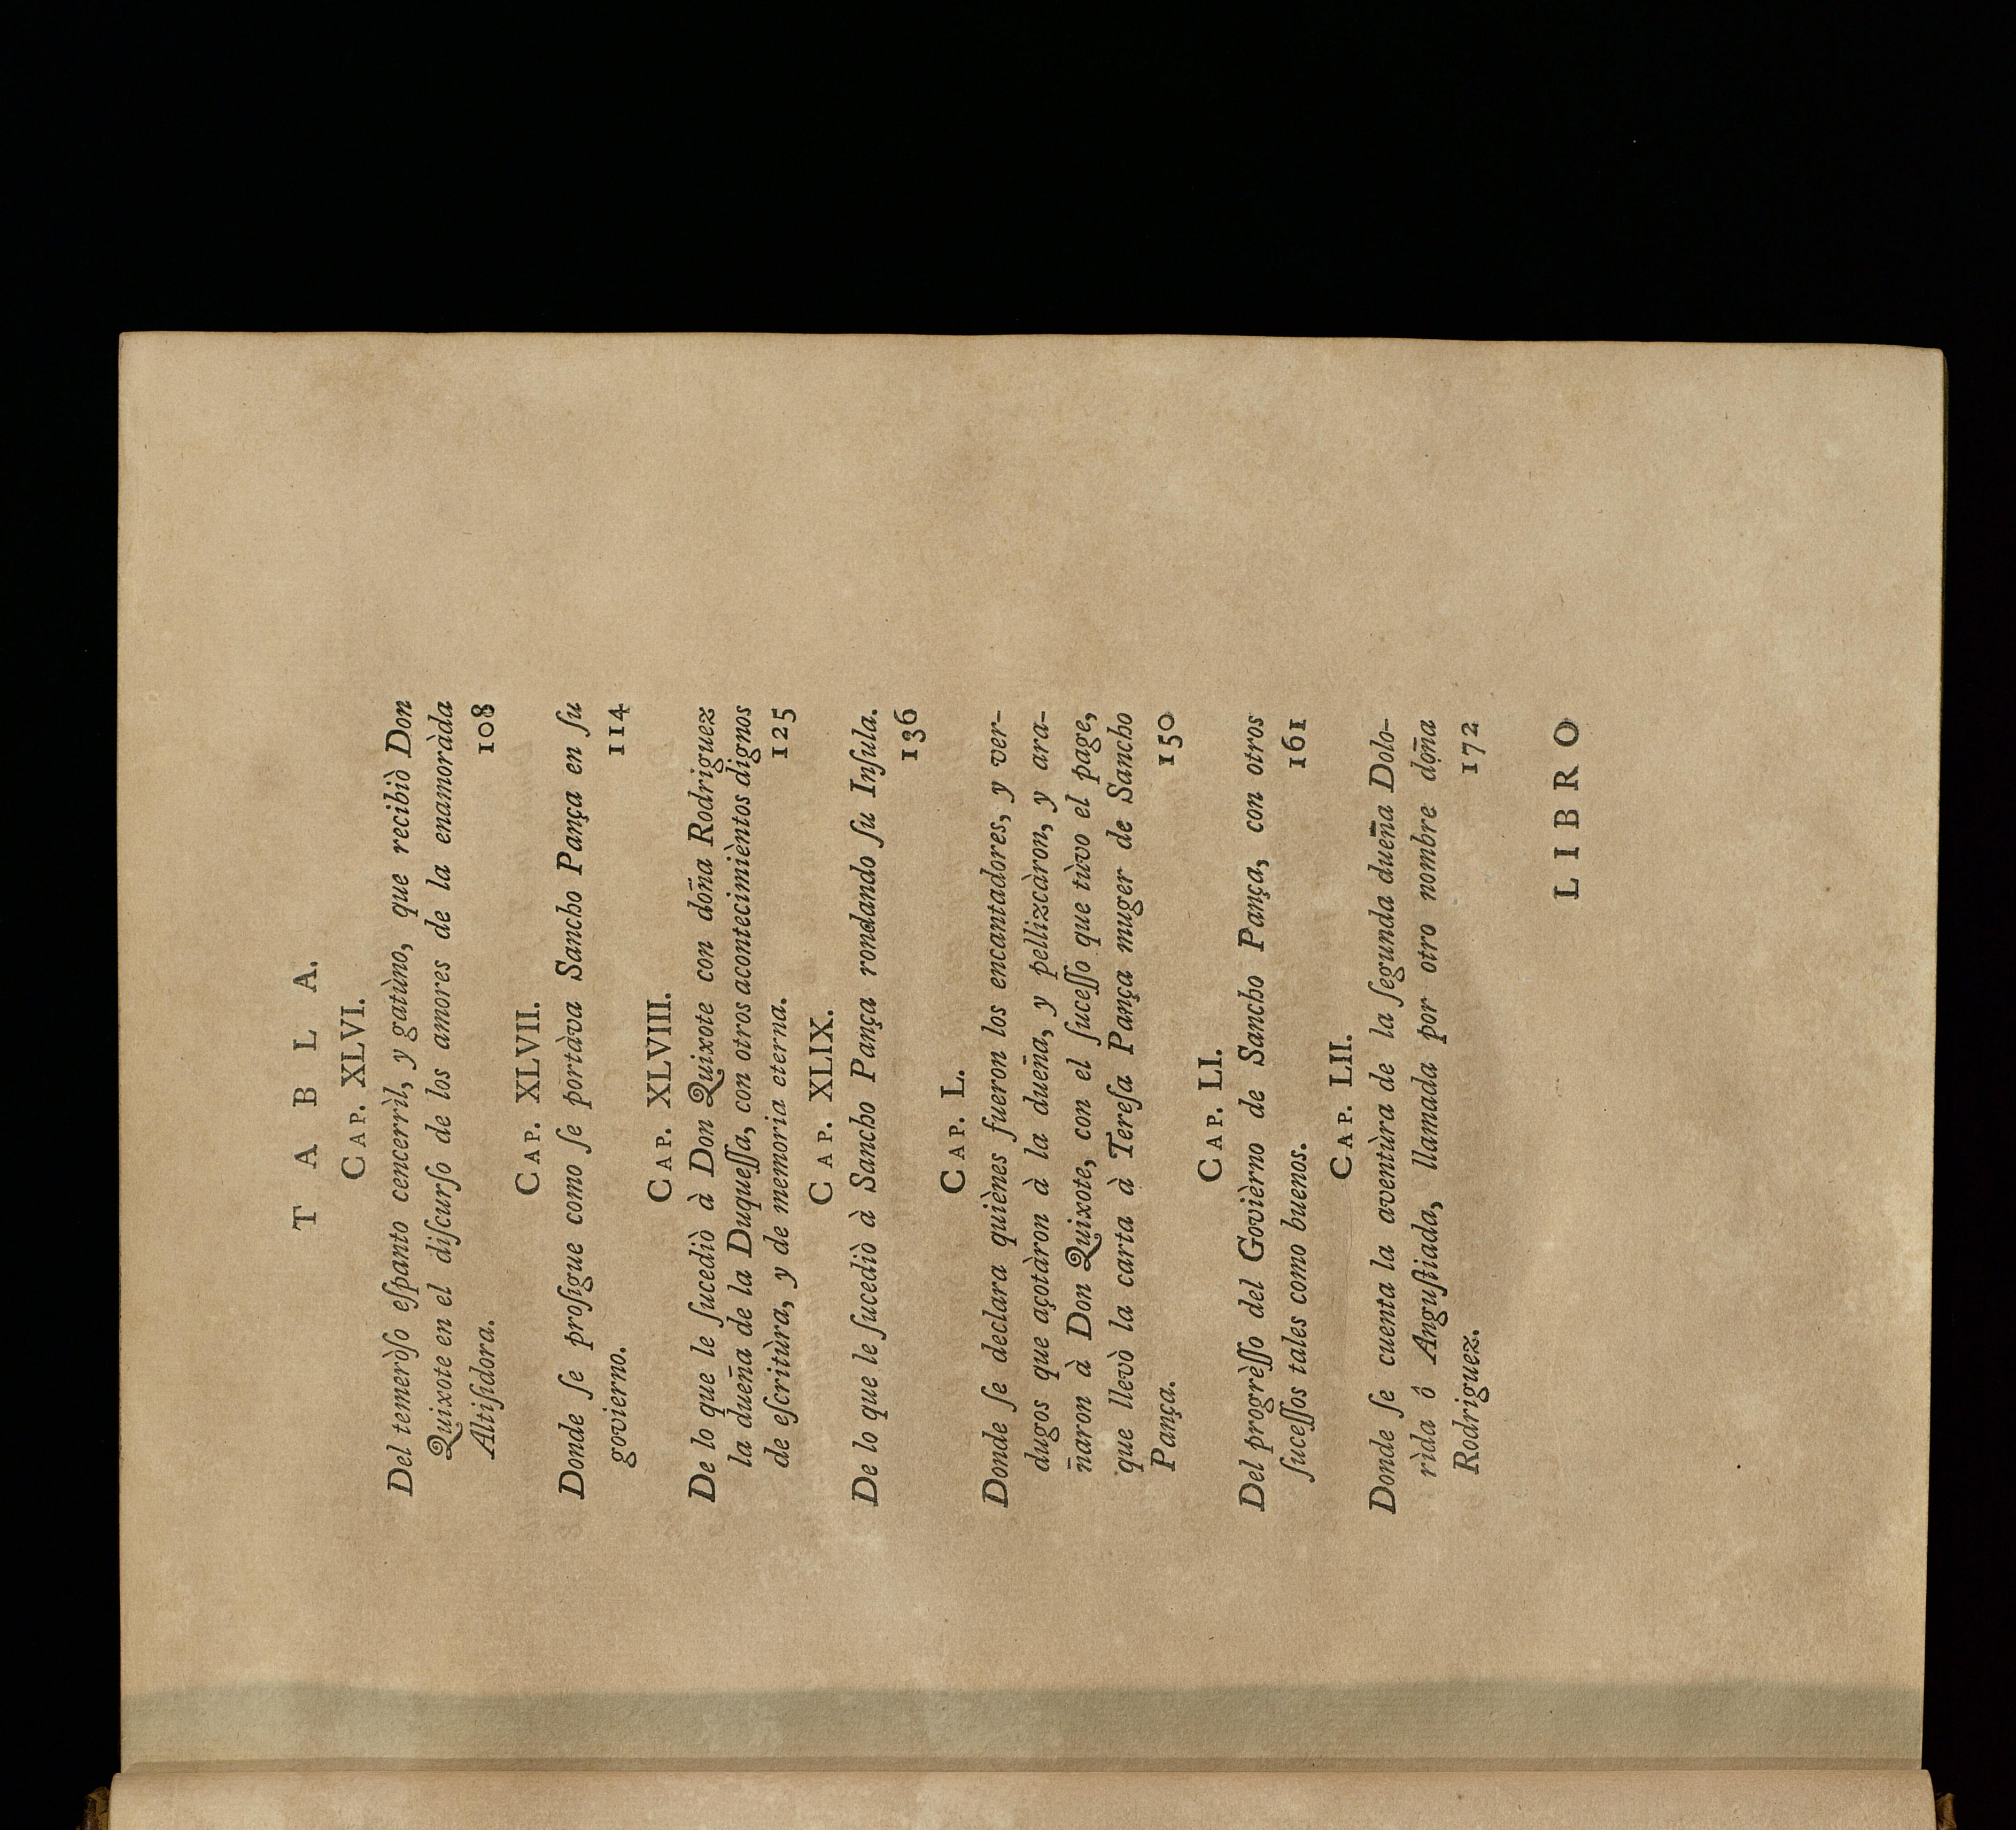 T A B L A.
CAP. XLVI.
Del temeròſo eſpanto cencerrìl, y gatùno, que recibiò Don
Quixote en el diſcurſo de los amores de la enamoràda
Altiſidora. 108
CAP. XLVII.
Donde ſe proſigue como ſe portàva Sancho Pança en ſu
govierno. 114
CAP. XLVIII.
De lo que le ſucediò à Don Quixote con doña Rodriguez
la dueña de la Duqueſſa, con otros acontecimièntos dignos
de eſcritùra, y de memoria eterna. 125
CAP. XLIX.
De lo que le ſucediò à Sancho Pança rondando ſu Inſula.
136
CAP. L.
Donde ſe declara quiènes fueron los encantadores, y ver-
dugos que açotàron à la dueña, y pellizcàron, y ara-
ñaron à Don Quixote, con el ſuceſſo que tùvo el page,
que llevò la carta à Tereſa Pança muger de Sancho
Pança. 150
CAP. LI.
Del progrèſſo del Govièrno de Sancho Pança, con otros
ſuceſſos tales como buenos. 161
CAP. LII.
Donde ſe cuenta la aventùra de la ſegunda dueña Dolo-
rìda ô Anguſtiada, llamada por otro nombre doña
Rodriguez. 172
L I B R O